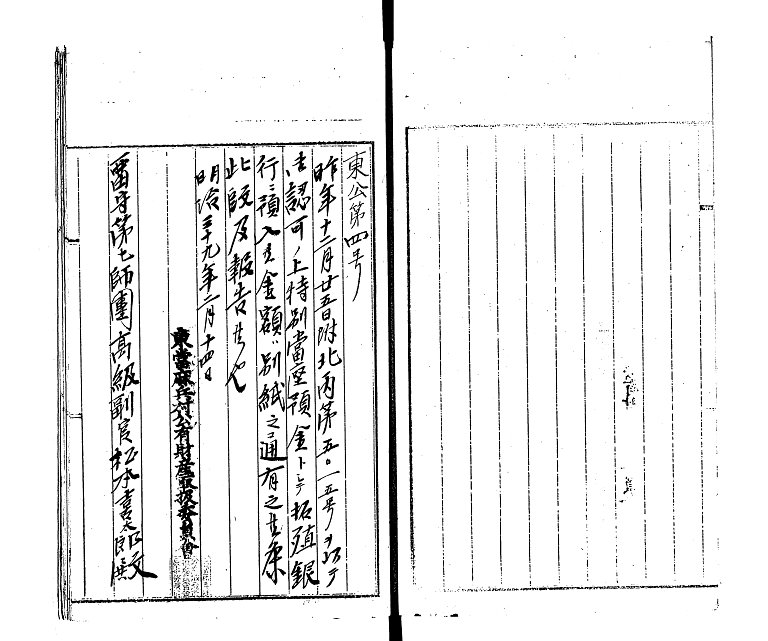 東公第四号
昨年十二月廿五日附北丙第五〇一五号ヲ以テ
御認可ノ上特別當座預金トシテ拓殖銀
行ニ預入候金額ハ別紙之通有之候条
此段及報告候也
明治三十九年二月十四日
東當麻兵村公有財産取扱委員會
留守第七師團高級副官松本喜太郎殿